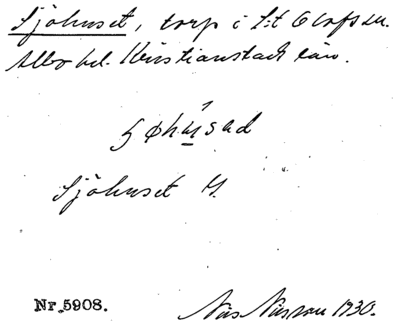 Sjöhuset, torp i S:t Olofs sn.
Albo hd. Kristianstads län.
Sjöhuset G.
Nr. 5908.
Nils Nilsson 1930.